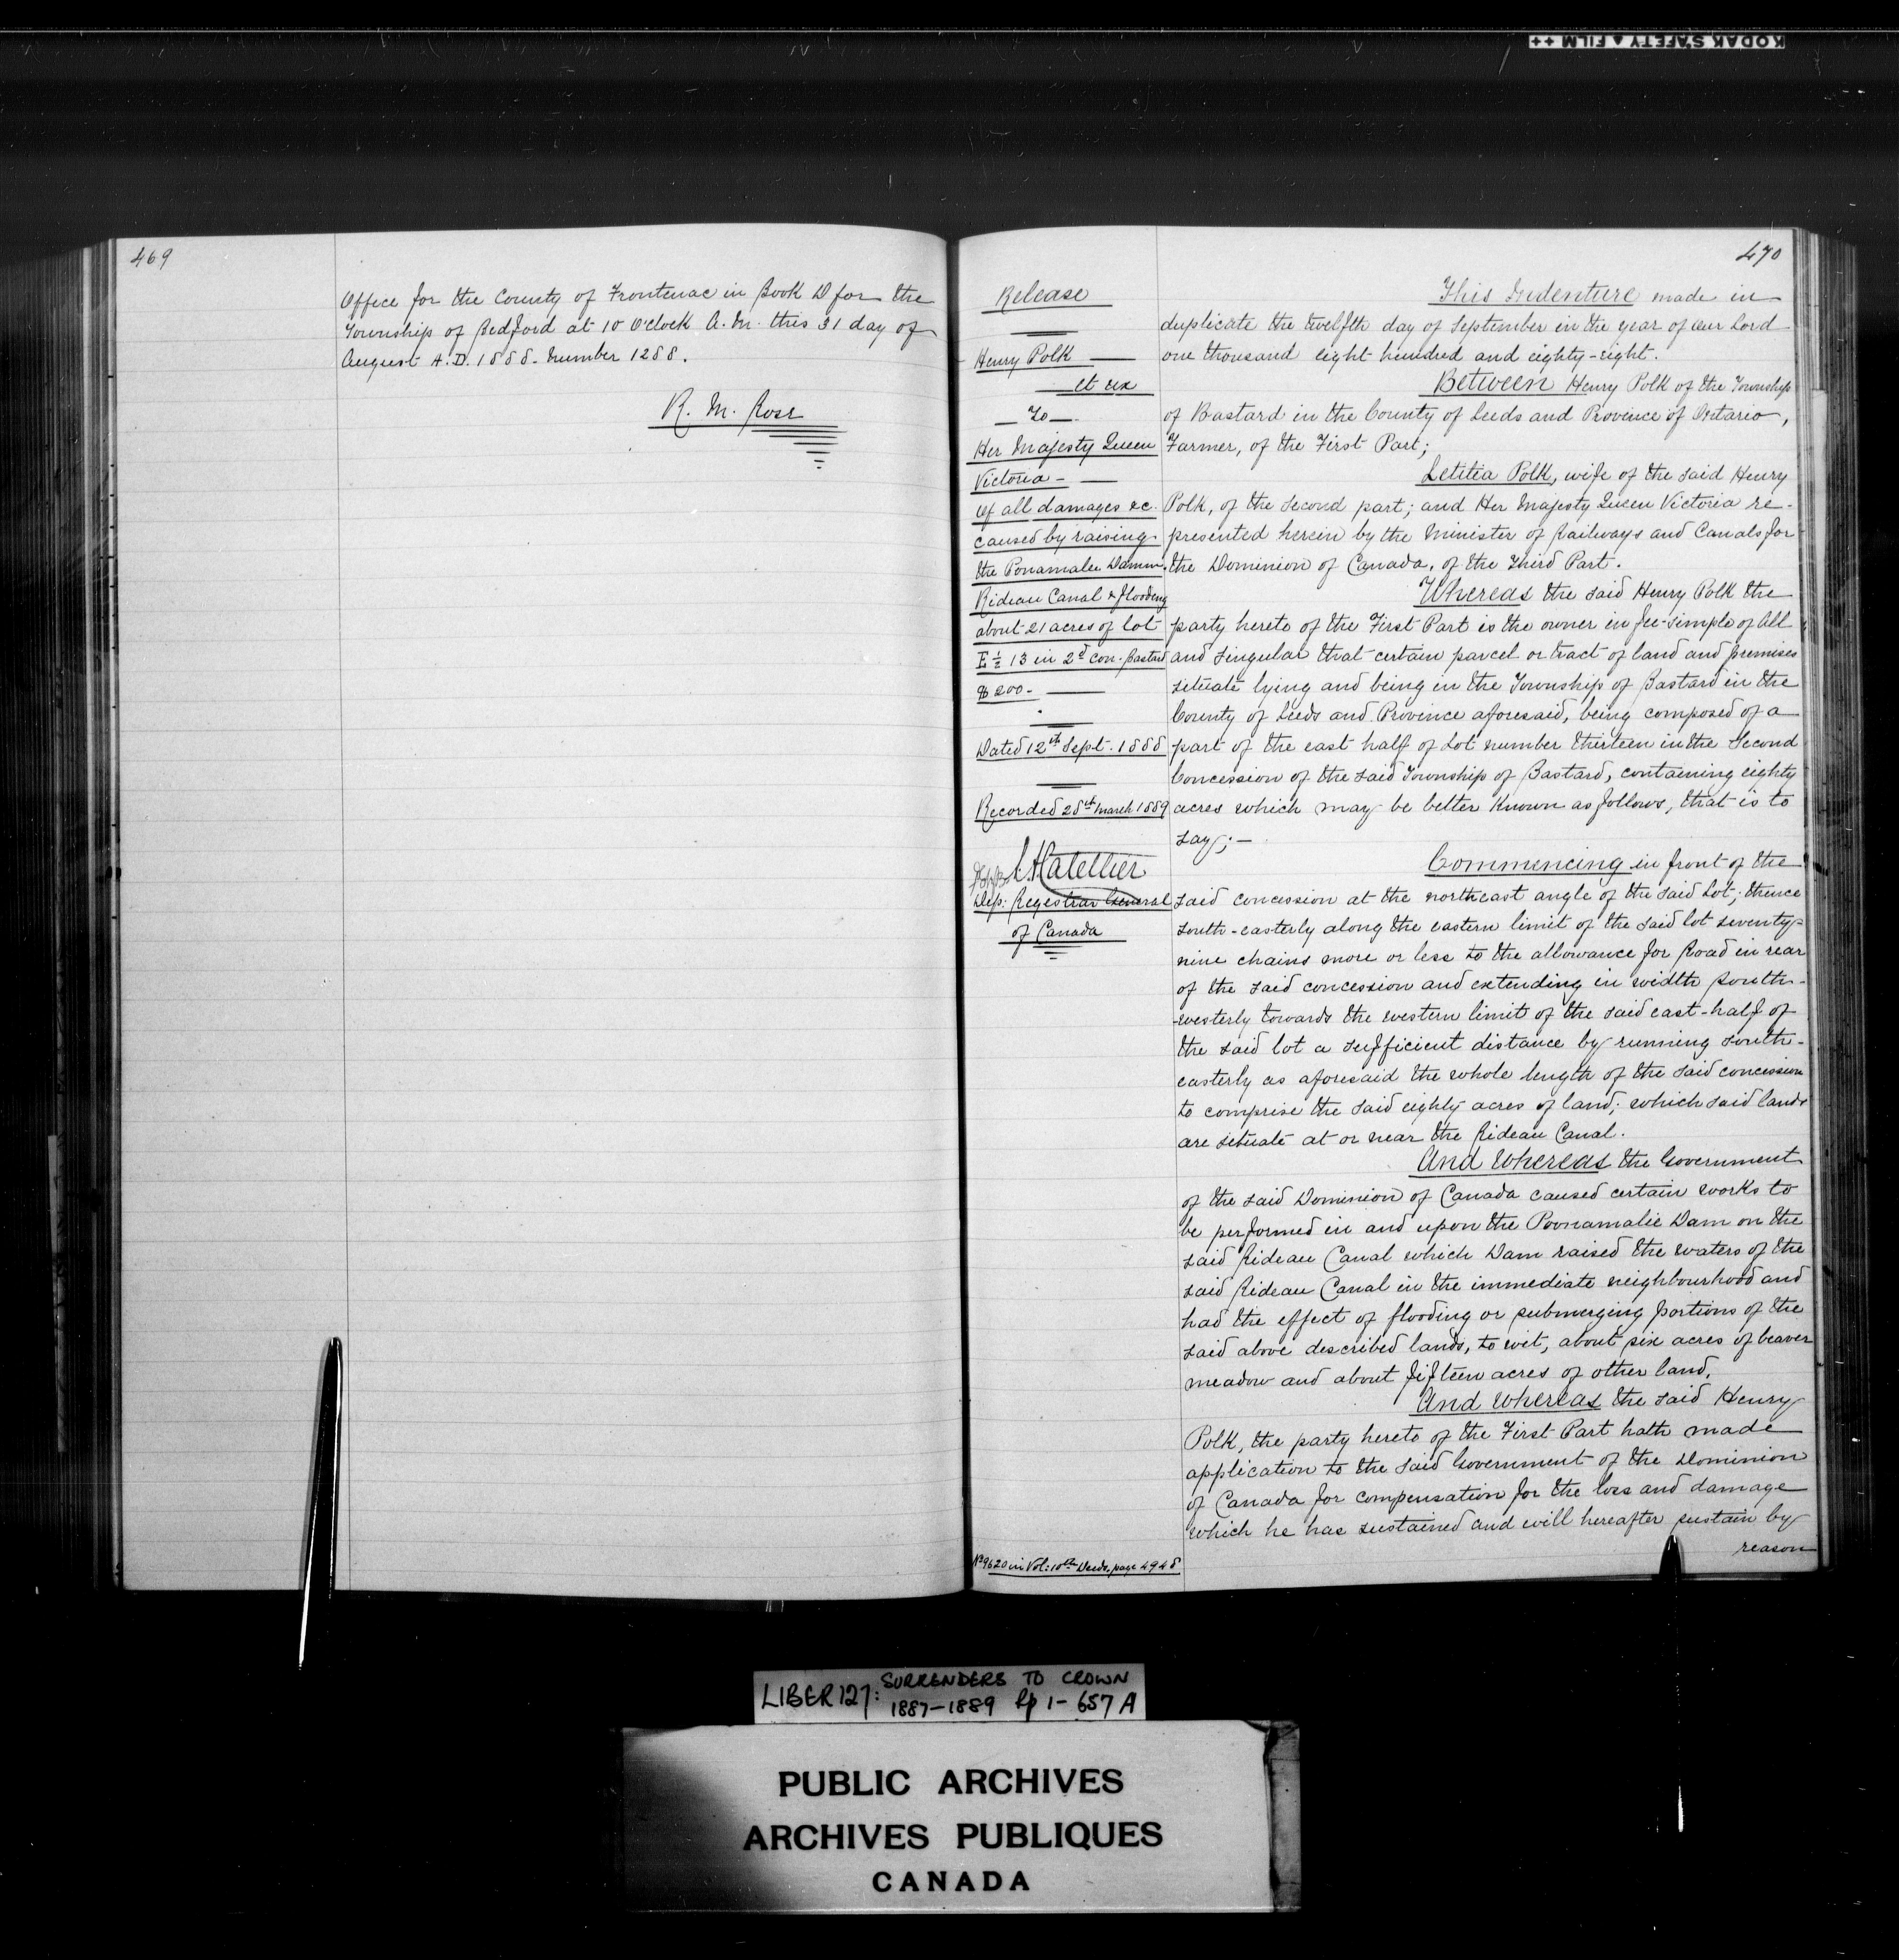 KODAK SAFETY FILM ++
469
Office for the County of Frontenac in Book D for the
Township of Bedford at 10 O'clock A.M. this 31 day of
August A.D. 1888. Number 1288.
R. M. Rose
470
Release
Henry Polk
et ux
To
Her Majesty Queen
Victoria
of all damages &c.
caused by raising
the Ponamalie Damm.
Rideau Canal & flooding
about 21 acres of lot
E ½ 13 in 2d Con. Bastard
$200.
Dated 12th Sept. 1888
Recorded 28th March 1889
Dep: Registrar General
of Canada
No 9620 in Vol: 10th Deeds, page 4948
This Indenture made in
duplicate the twelfth day of September in the year of our Lord
one thousand eight hundred and eighty-eight.
Between Henry Polk of the Township
of Bastard in the County of Leeds and Province of Ontario,
Farmer, of the First Part;
Letitia Polk, wife of the said Henry
Polk, of the second part; and Her Majesty Queen Victoria re-
presented herein by the Minister of Railways and Canals for
the Dominion of Canada, of the Third Part.
Whereas the said Henry Polk the
party hereto of the First Part is the owner in fee-simple of All
and singular that certain parcel or tract of land and premises
situate lying and being in the Township of Bastard in the
County of Leeds and Province aforesaid, being composed of a
part of the east half of Lot number thirteen in the Second
Concession of the said Township of Bastard, containing eighty
acres which may be better known as follows, that is to
say; —
Commencing in front of the
said concession at the northeast angle of the said Lot; thence
south-easterly along the eastern limit of the said lot seventy-
nine chains more or less to the allowance for Road in rear
of the said concession and extending in width south-
-westerly towards the western limit of the said east-half of
the said lot a sufficient distance by running south-
easterly as aforesaid the whole length of the said concession
to comprise the said eighty acres of land; which said lands
are situate at or near the Rideau Canal.
And Whereas the Government
of the said Dominion of Canada caused certain works to
be performed in and upon the Poonamalie Dam on the
said Rideau Canal which Dam raised the waters of the
said Rideau Canal in the immediate neighbourhood and
had the effect of flooding or submerging portions of the
said above described lands, to wit, about six acres of beaver
meadow and about fifteen acres of other land.
And whereas the said Henry
Polk, the party hereto of the First Part hath made
application to the said Government of the Dominion
of Canada for compensation for the loss and damage
which he has sustained and will hereafter sustain by
reason
LIBER 127: SURRENDERS TO CROWN
1887-1889 Pp 1-657A
PUBLIC ARCHIVES
ARCHIVES PUBLIQUES
CANADA